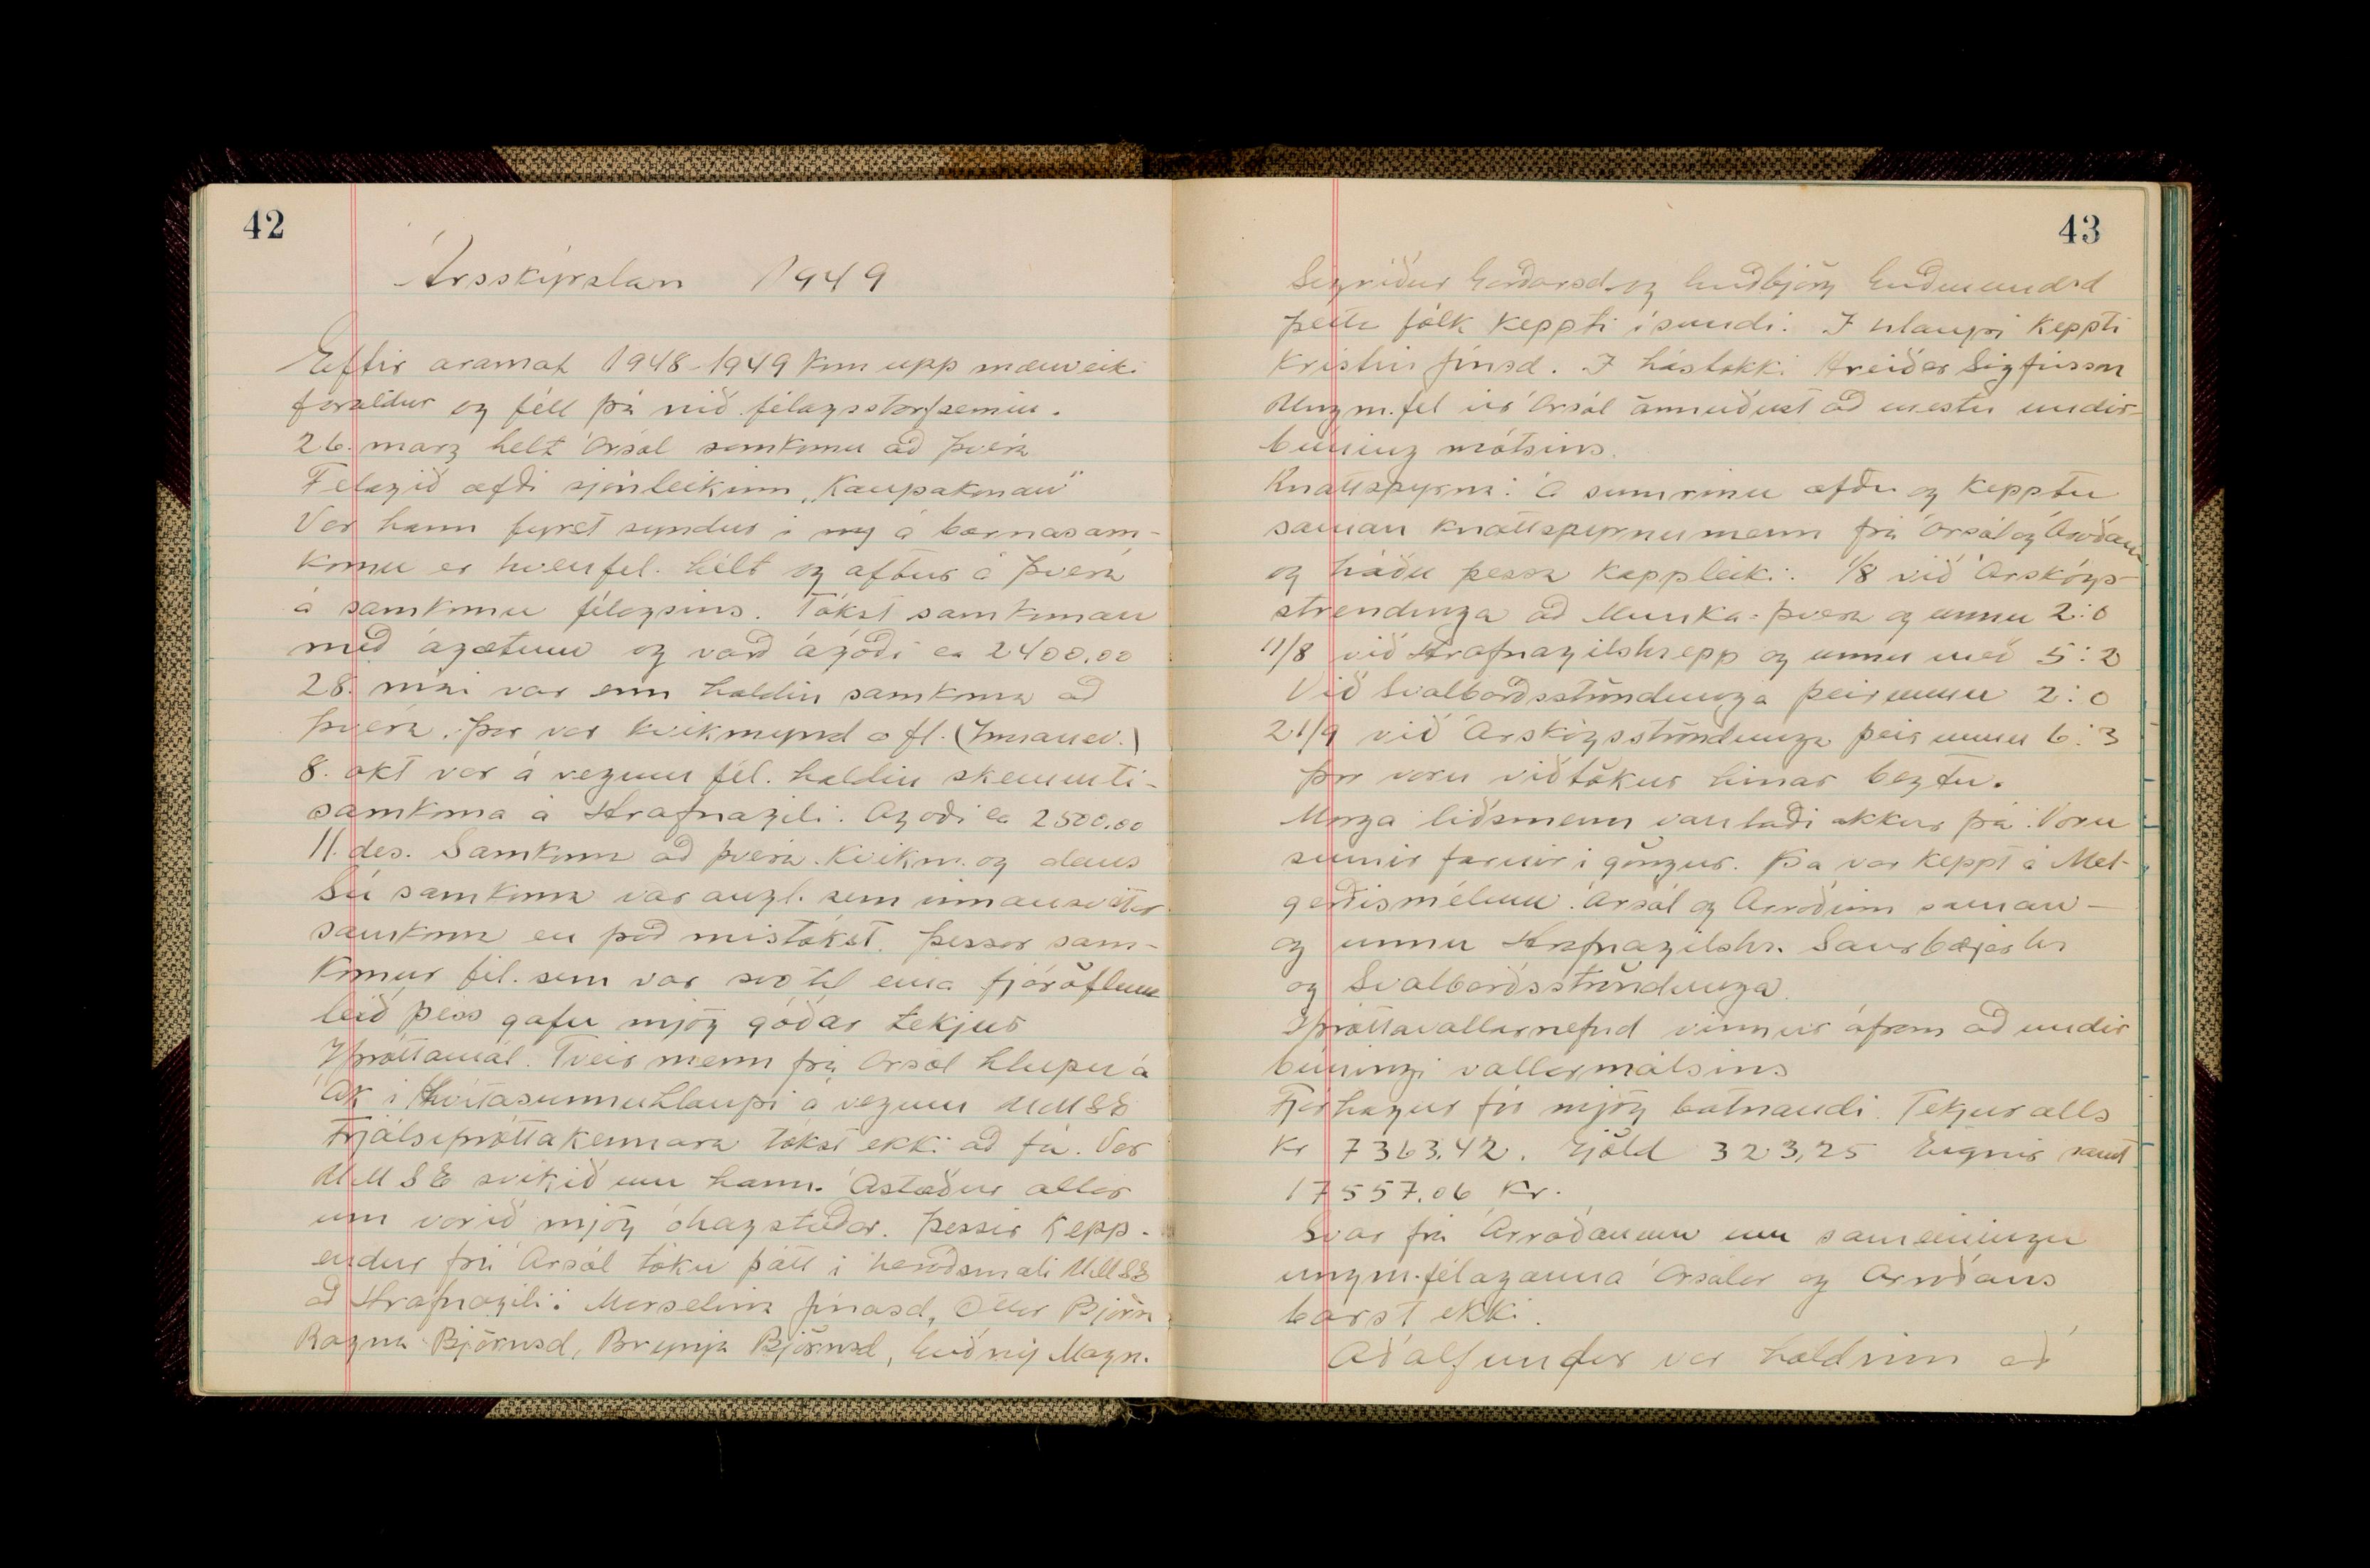 42
Ársskýrslan 1949
Eftir áramót 1948-1949 kom upp mænuveiki
faraldur og féll þá niður félagsstarfsemin.
26. marz helt Ársól samkomu að Þverá
Félagið æfði sjónleikinn "Kaupakonan"
Var hann fyrst syndur i á barnasam-
komu er kvenfel. hélt og aftur á Þverá
á samkomu félagsins. Tókst samkoman
með ágætum og varð ágóði ca 2400.00
28. mai var enn haldin samkoma að
Þverá. Þar var kvikmynd o fl.
8. okt var á vegum fél. haldin skemmti-
samkoma á Hrafnagili. Agoði ca 2500.00
11. des. Samkoma að Þverá. Kvikm. og dans
Sú samkoma var augl. sem innansveitar
samkoma en það mistókst. Þessar sam-
komur fél. sem var svo til eina fjáröflunar
leið þess gáfu mjög góðar tekjur
Iþróttamál. Tveir menn frá Ársól hlupu á
Ak i Hvitasunnuhlaupi á vegum UMSE
Frjálsiþróttakennara tókst ekki að fá. Var
UMSE svikið um hann. Ástæður allar
um vorið mjög óhagstæðar. Þessir kepp-
endur frá Ársól tóku þátt i heraðsmoti UMSE
að Hrafnagili: Marselina Jónasd, Ottar Björn
Ragna Björnsd, Brynja Björnsd, Guðný Magn.
43
Sigriður Garðarsd og Guðbjörg Guðmundsd
þetta fólk keppti i sundi. I hlaupi keppti
Kristin Jónsd. I hástökki Hreiðar Sigfússon
Ungm.fel úr Ársól önnuðust að mestu undir-
búning mótsins.
Knattspyrna: Á sumrinu æfðu og kepptu
saman knattspyrnumenn frá Ársól og Árroðanum
og háðu þessa kappleiki: 1/8 við Árskógs-
strendinga að Munka-Þverá og unnu 2:0
11/8 við Hrafnagilshrepp og unnu með 5:2
Við Svalbarðsströndunga þeir unnu 2:0
21/9 við Árskógsströndunga þeir unnu 6:3
Þar voru viðtökur hinar beztu.
Marga liðsmenn vantaði okkur þá. Voru
sumir farnir i göngur. Þa var keppt á Mel-
gerðismélum. Ársól og Arroðinn saman-
og unnu Hrafnagilshr. Saurbæjarhr
og Svalbarðsströndunga.
Iþróttavallarnefnd vinnur áfram að undir
búningi vallarmálsins
Fjárhagur fór mjög batnandi. Tekjur alls
Kr 7363.42. Gjöld 323,25 Eignir samt
17557.06 Kr.
Svar frá Árroðanum um sameiningu
ungm.félaganna Ársólar og Arroðans
barst ekki.
Aðalfundur var haldinn að